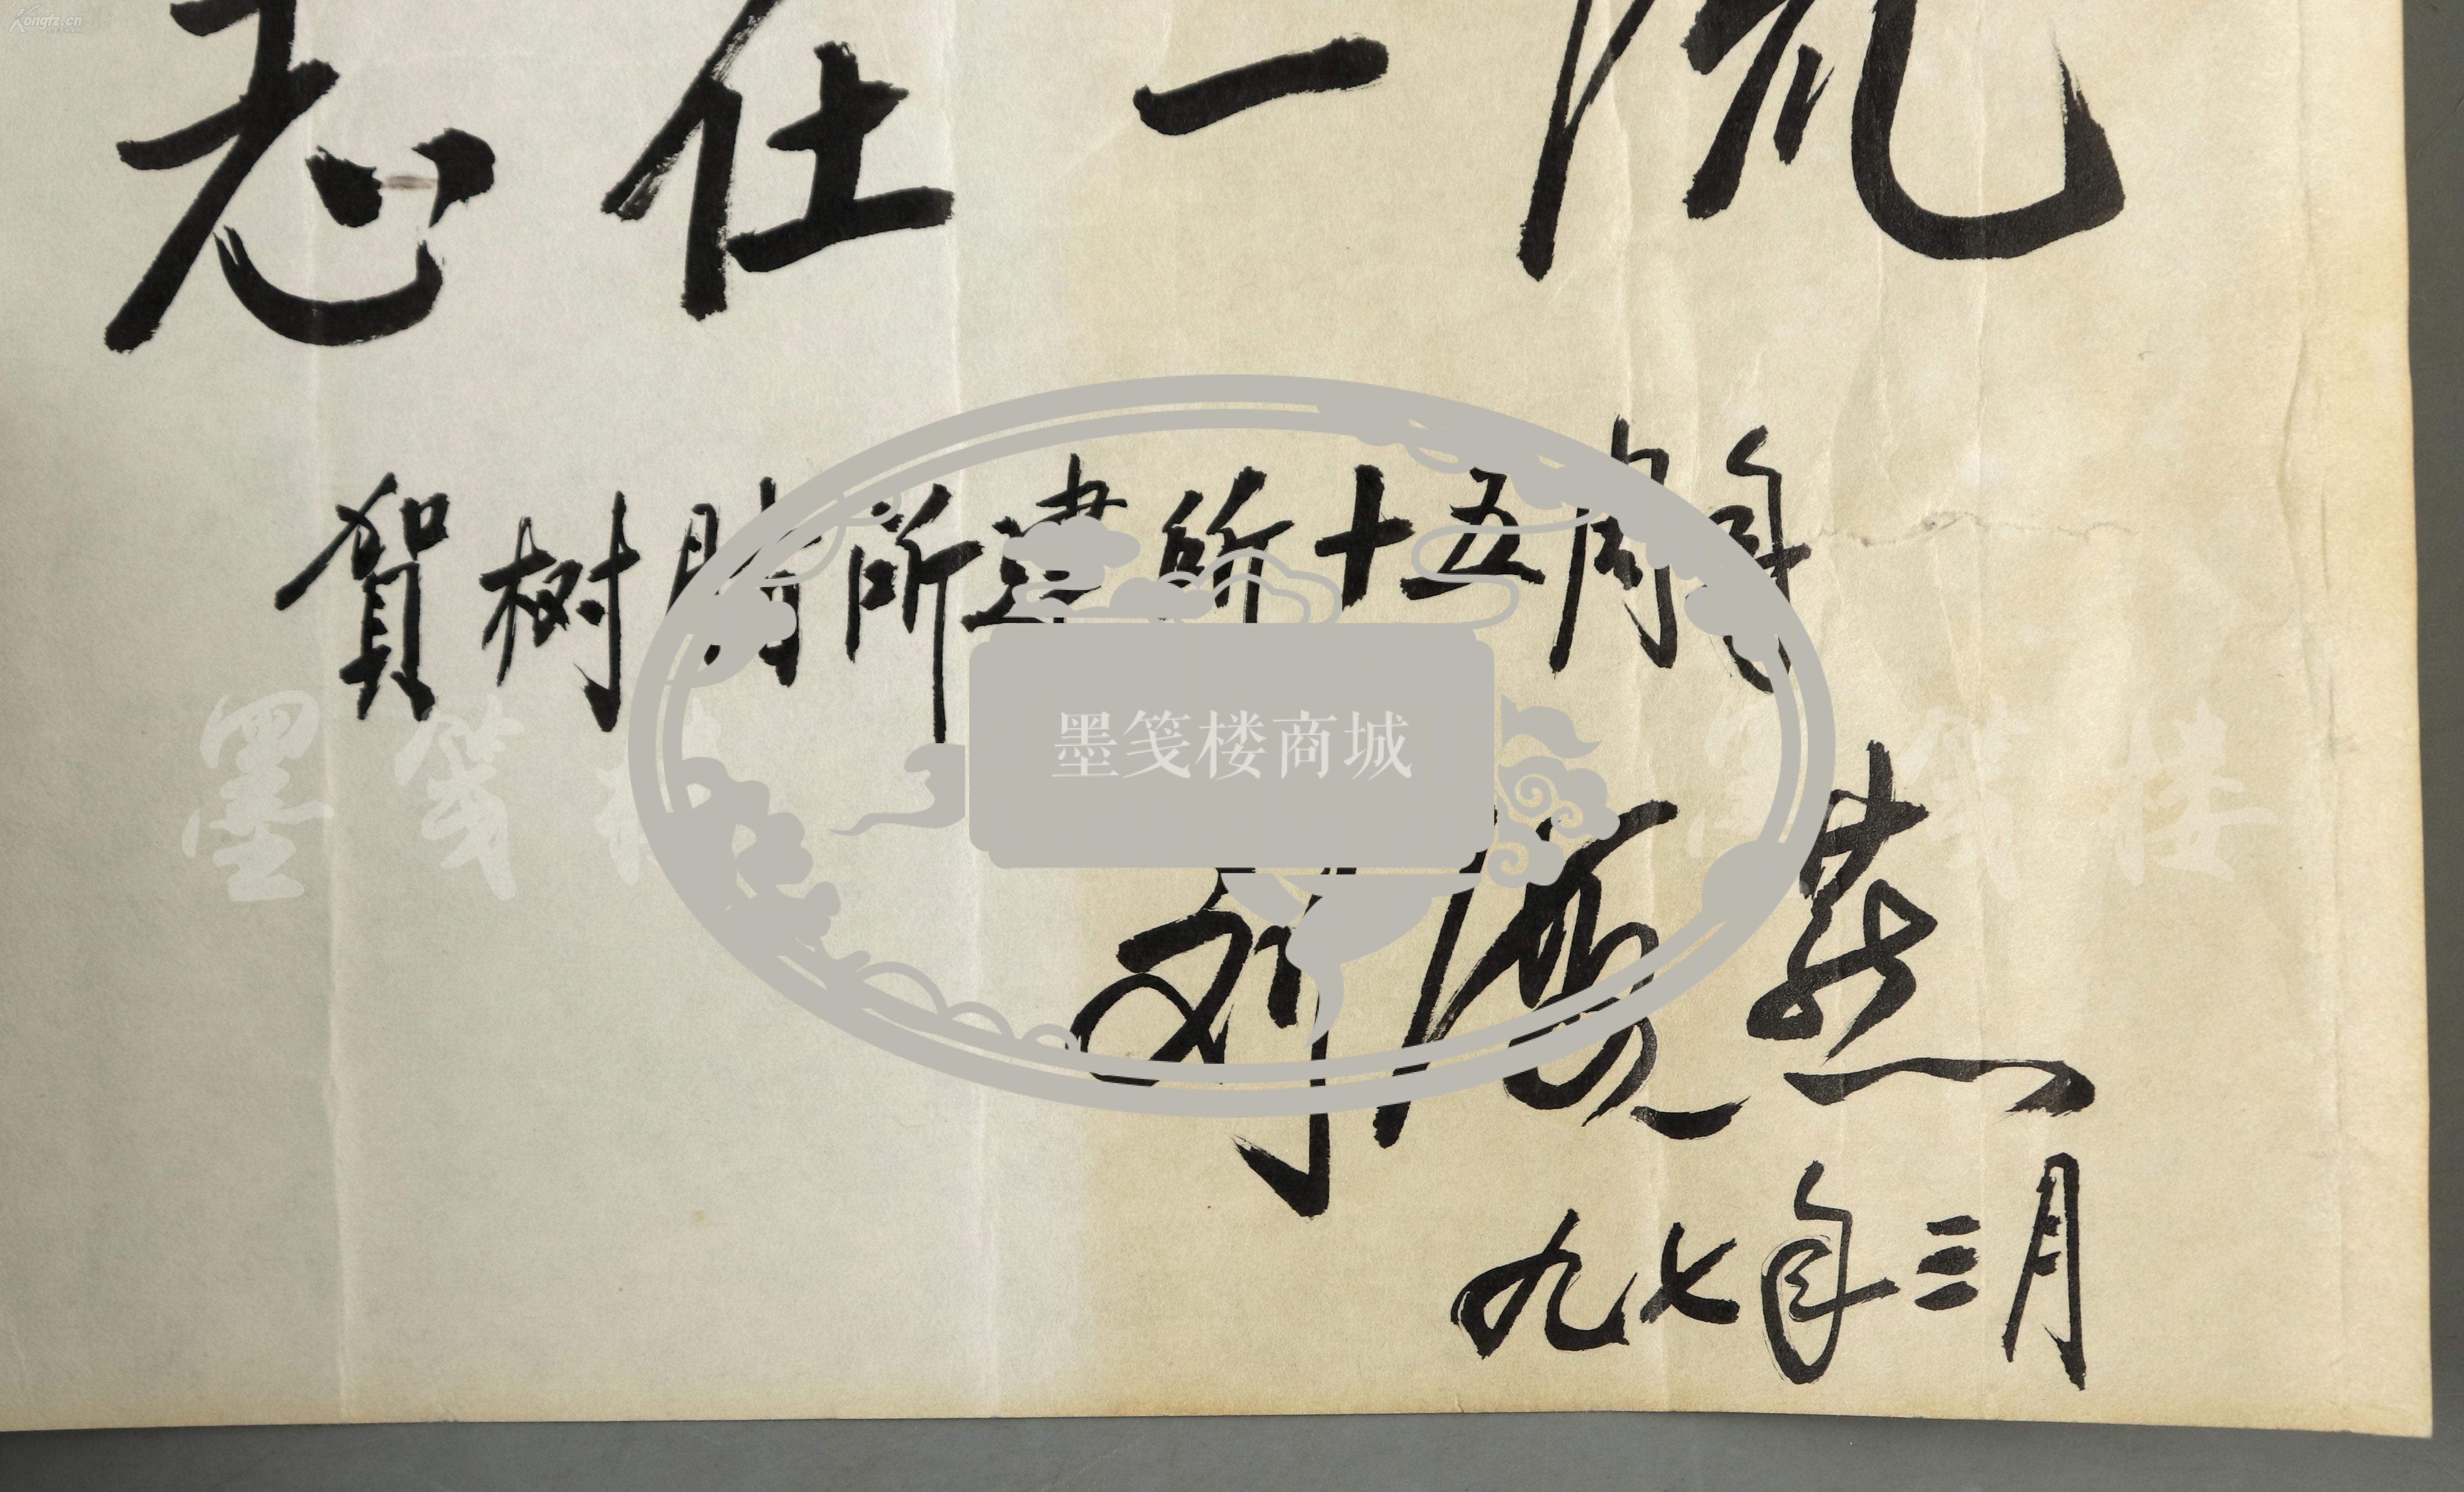 Kongfz.cn
志在一流
贺树
所建所十五周年
墨笺楼商城
墨笺
墨笺楼
刘海燕
九七年三月